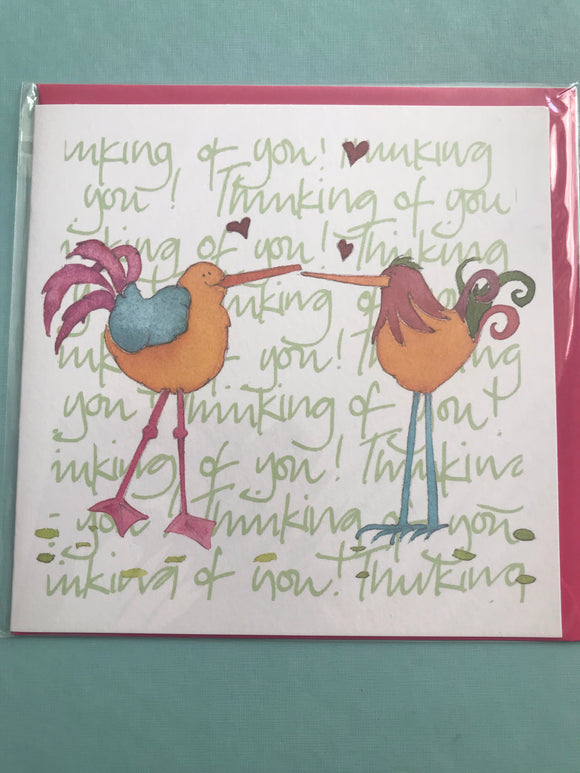 inking of you! Thinking
you! Thinking of you
inking of you! Thinking
inking of
inking of you! Thinking
you! Thinking of you!
inking of you! Thinking
you! Thinking of you
inking of you! Thinking